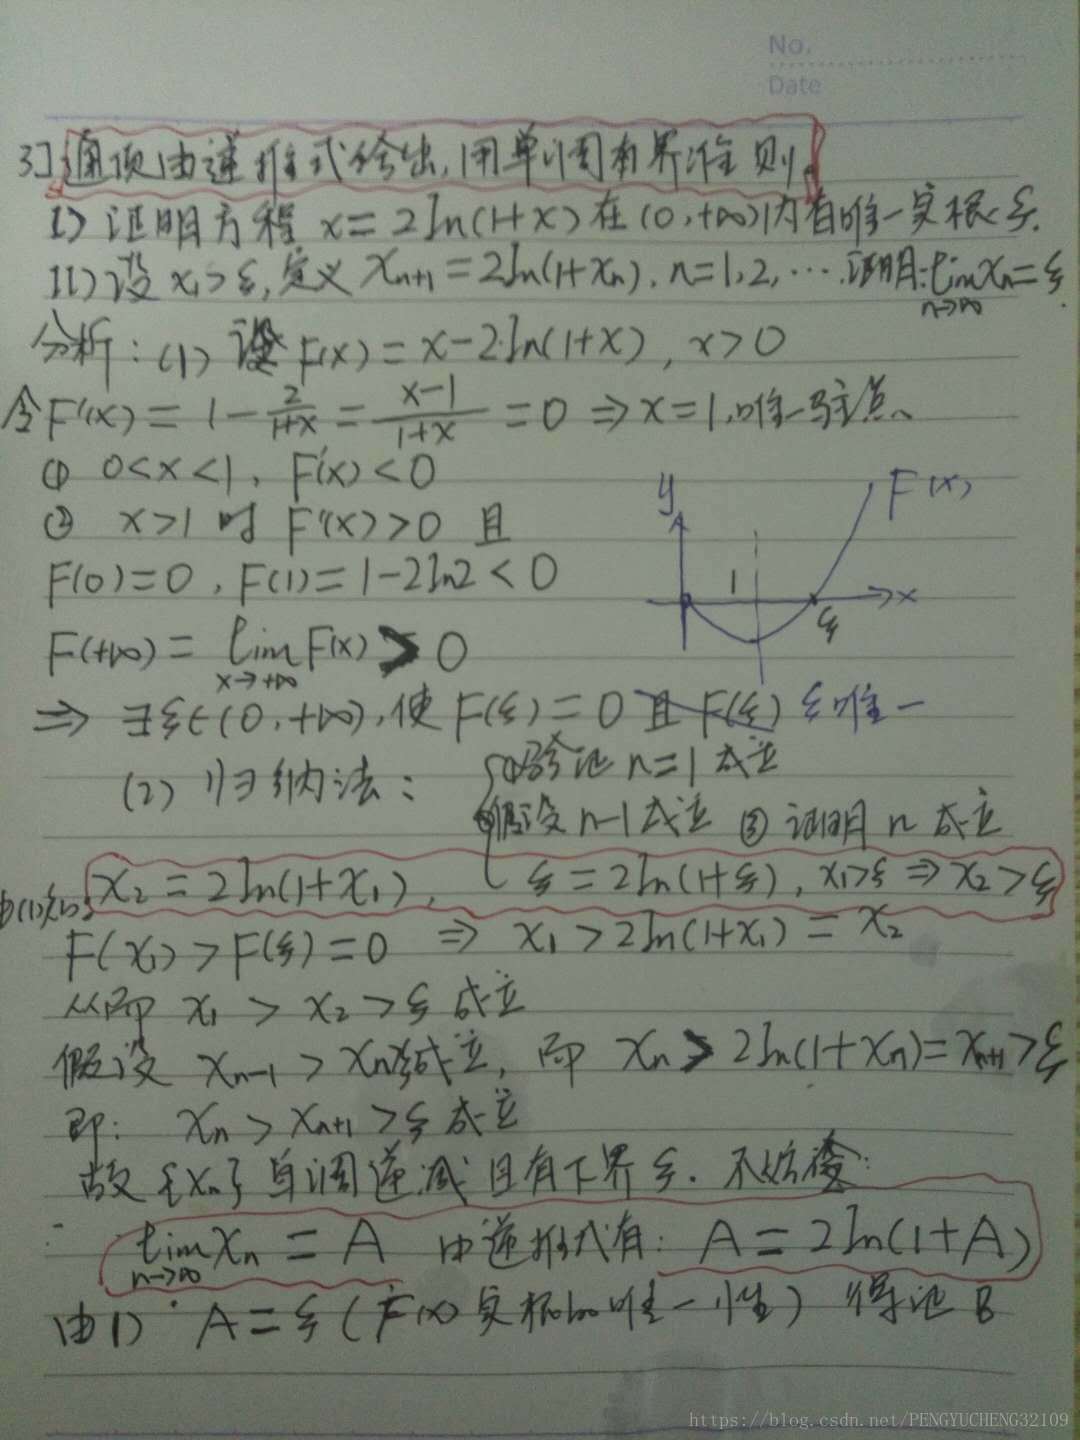 No.
Date
3] 通项由递推式给出,用单调有界准则.
I) 证明方程 x=2ln(1+x) 在 (0,+∞) 内有唯一实根 ξ.
II) 设 x₁>ξ, 定义 xₙ₊₁=2ln(1+xₙ), n=1,2,… 证明: lim xₙ=ξ.
n→∞
分析: (1) 设 F(x)=x-2ln(1+x), x>0
令 F'(x)=1-2/(1+x)=(x-1)/(1+x)=0 ⇒ x=1,唯一驻点、
① 0<x<1, F'(x)<0
② x>1 时 F'(x)>0 且
F(0)=0, F(1)=1-2ln2<0
F(+∞)=lim F(x)>0
x→+∞
y
F(x)
1
x
ξ
⇒ ∃ξ∈(0,+∞),使 F(ξ)=0 且 F(ξ) ξ唯一
(2) 归纳法: ①验证 n=1 成立
②假设 n-1 成立 ③ 证明 n 成立
由(1)知: x₂=2ln(1+x₁), ξ=2ln(1+ξ), x₁>ξ ⇒ x₂>ξ
F(x₁)>F(ξ)=0 ⇒ x₁>2ln(1+x₁)=x₂
从而 x₁>x₂>ξ 成立
假设 xₙ₋₁>xₙ>ξ成立, 而 xₙ>2ln(1+xₙ)=xₙ₊₁>ξ
即: xₙ>xₙ₊₁>ξ 成立
故 {xₙ} 单调递减 且有下界 ξ. 不妨设:
lim xₙ=A 由递推式有: A=2ln(1+A)
n→∞
由1) A=ξ (F(x) 实根的唯一性) 得证
https://blog.csdn.net/PENGYUCHENG32109